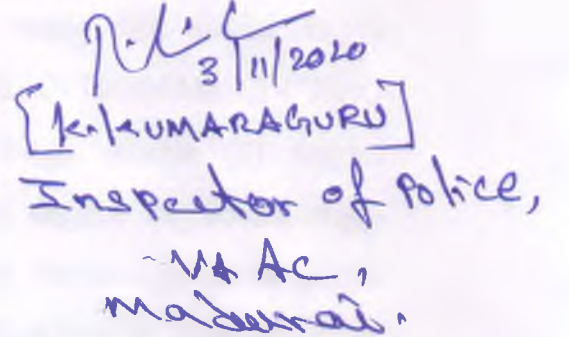 3/11/2020
[K. KUMARAGURU]
Inspector of Police,
V & AC,
Madurai.